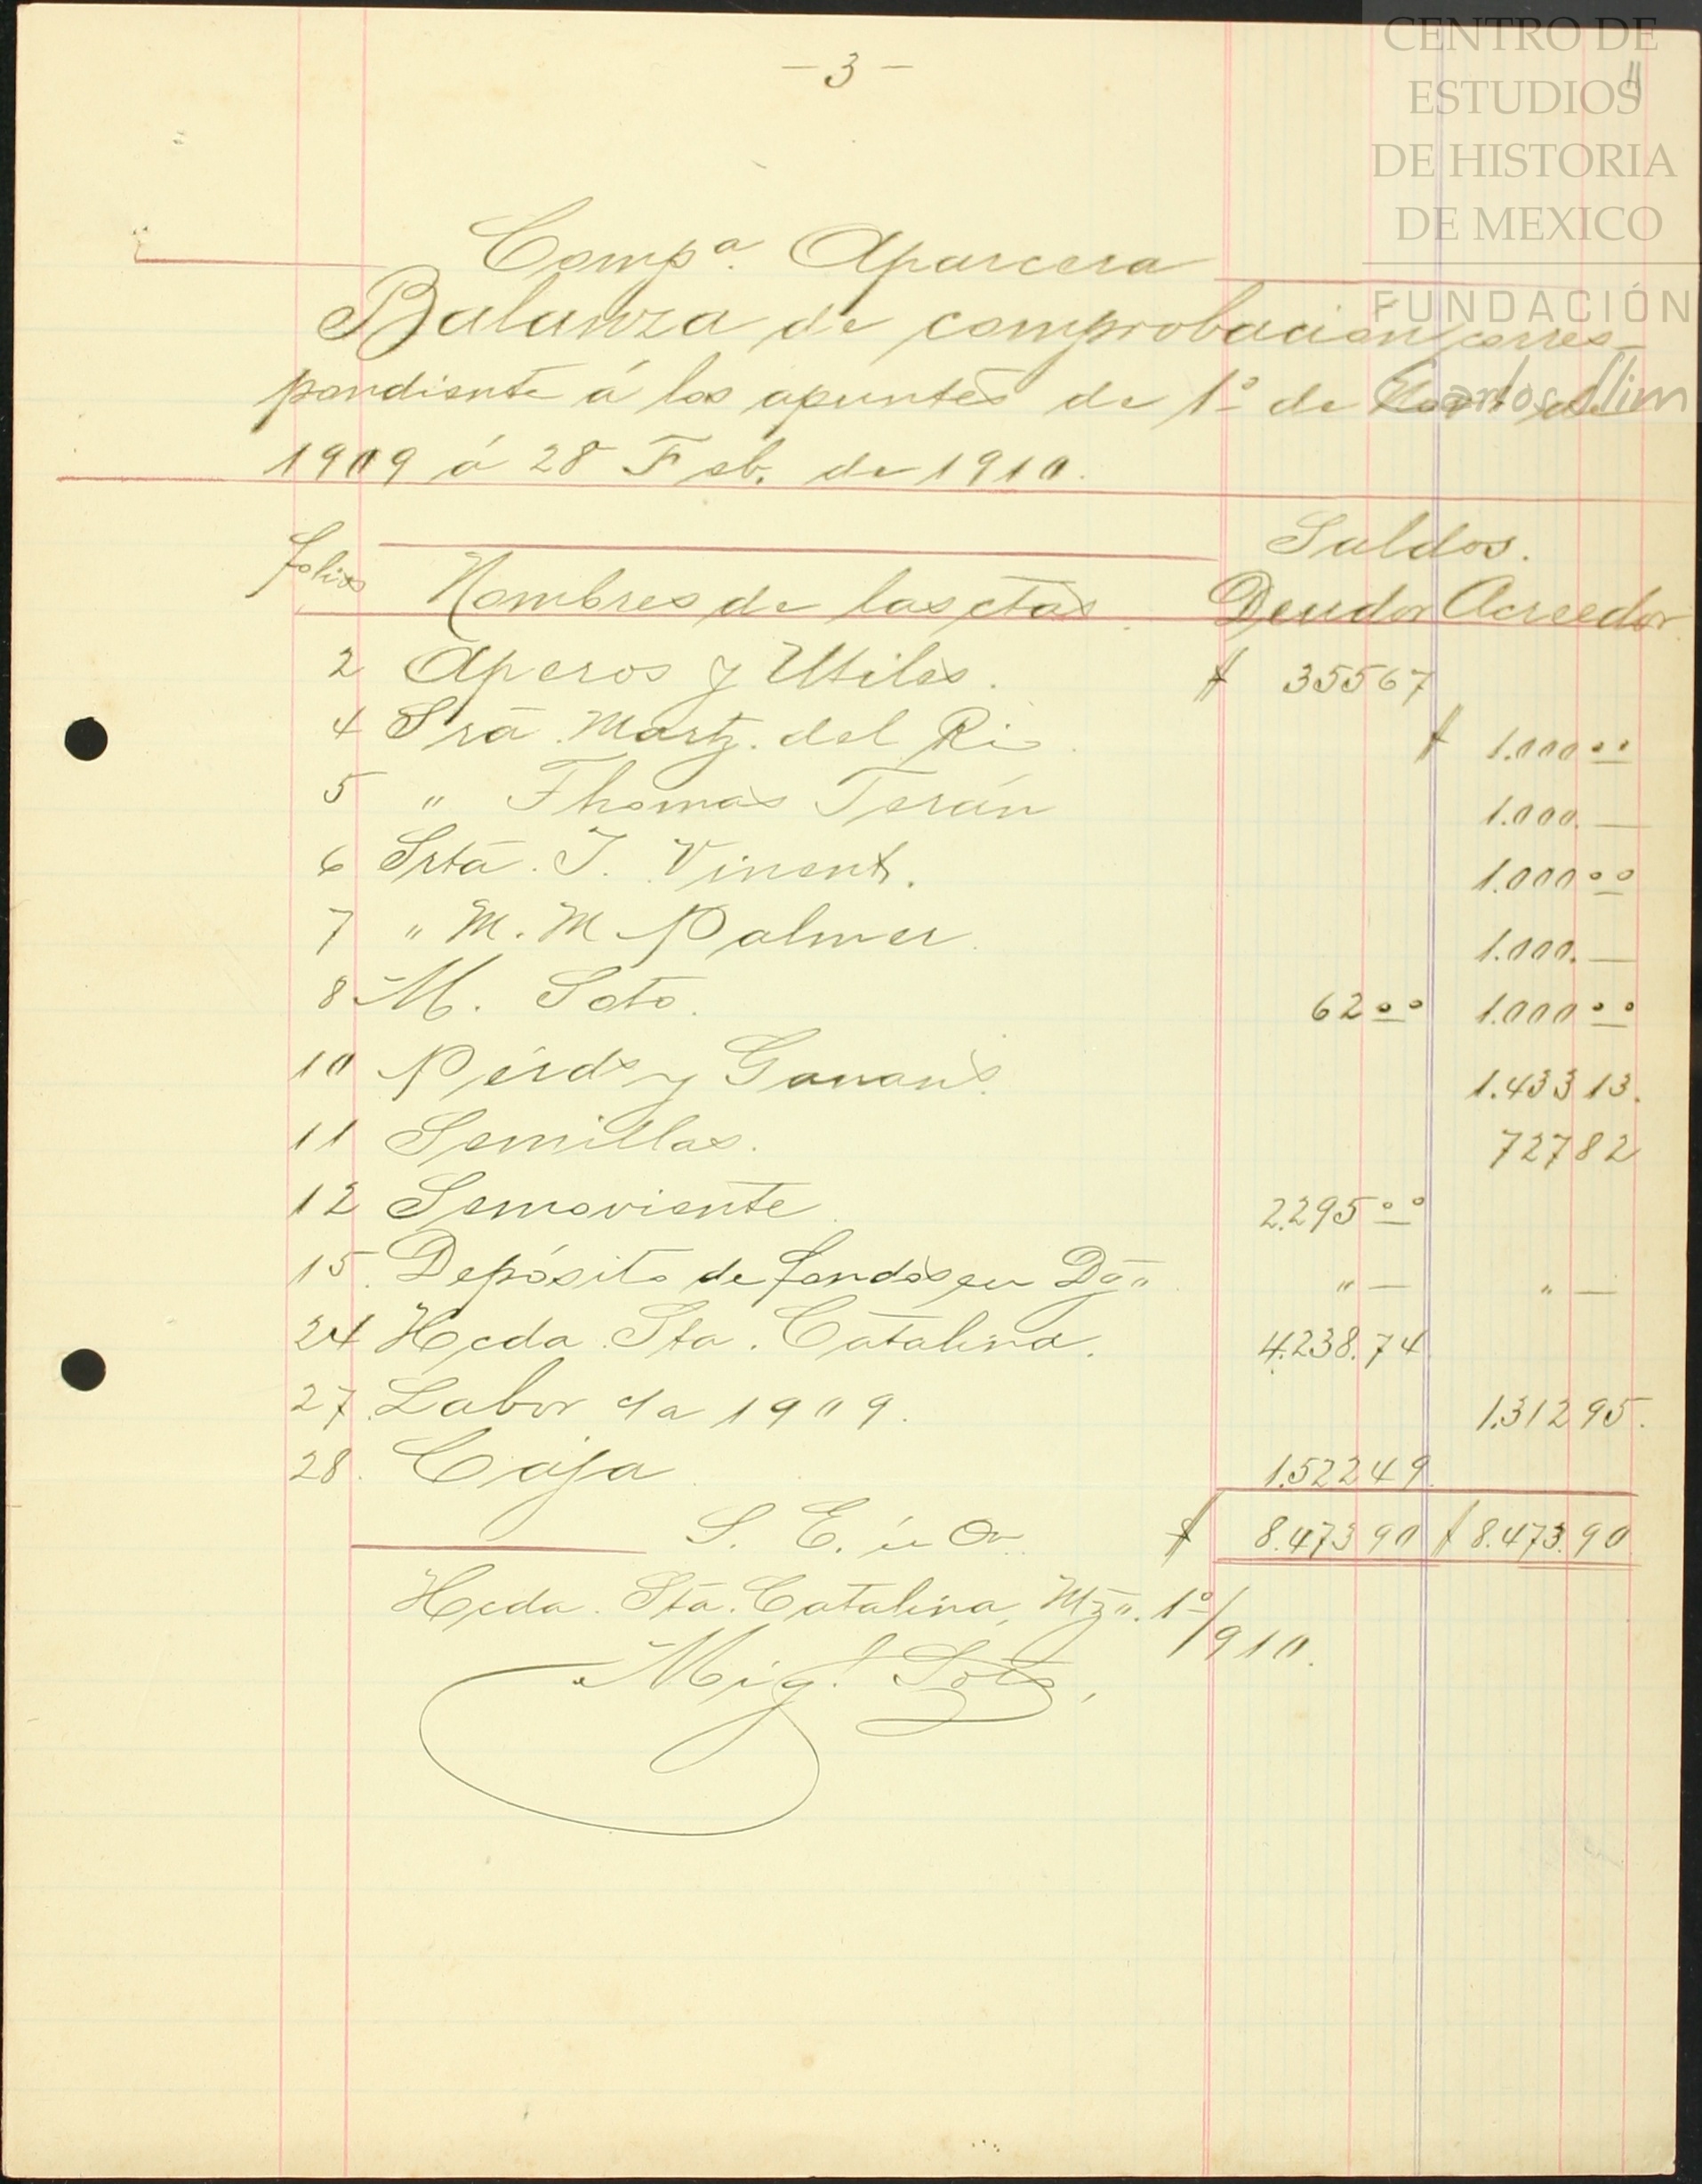 CENTRO DE
ESTUDIOS
DE HISTORIA
DE MEXICO
FUNDACIÓN
Carlos Slim
— 3 —
Compª. Aparcera
Balanza de comprobación corres-
pondiente á los apuntes de 1º de de
1909 á 28 Feb. de 1910.
Saldos.
folios Nombres de las ctas. Deudor Acreedor
2 Aperos y Utiles. $ 355 67
4 Sra. Martz. del Rio. $ 1.000 00
5 " Thomas Terán 1.000. —
6 Srta. I. Vinent. 1.000 00
7 " M. M Palmer. 1.000. —
8 M. Soto. 62 00 1.000 00
10 Pérds y Ganans. 1.433 13.
11 Semillas. 727 82
12 Semoviente. 2.295 00
15. Depósito de fondos en Dg" " — " —
24 Hcda. Sta. Catalina. 4.238.74
27. Labor de 1909. 1.312 95.
28. Caja. 1.522 49.
S. E. ú O. $ 8.473 90 $ 8.473.90
Hcda. Sta. Catalina, Mzo. 1º/910.
Migl. Soto,